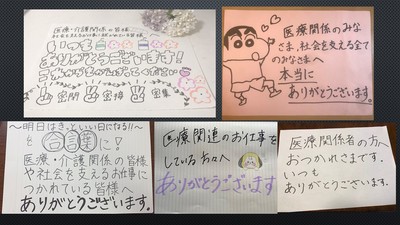 医療・介護関係の皆様
いつも
ありがとうございます!
密閉 密接 密集
医療関係のみな
さま、社会を支える全て
のみなさまへ
本当に
ありがとうございます。
〜明日はきっといい日になる!!〜
を合言葉に!
医療・介護関係の皆様
や社会を支えるお仕事に
つかれている皆様へ
ありがとうございます。
医療関連のお仕事を
している方々へ
ありがとうございます
医療関係者の方へ
おつかれさまです。
いつも
ありがとうございます。